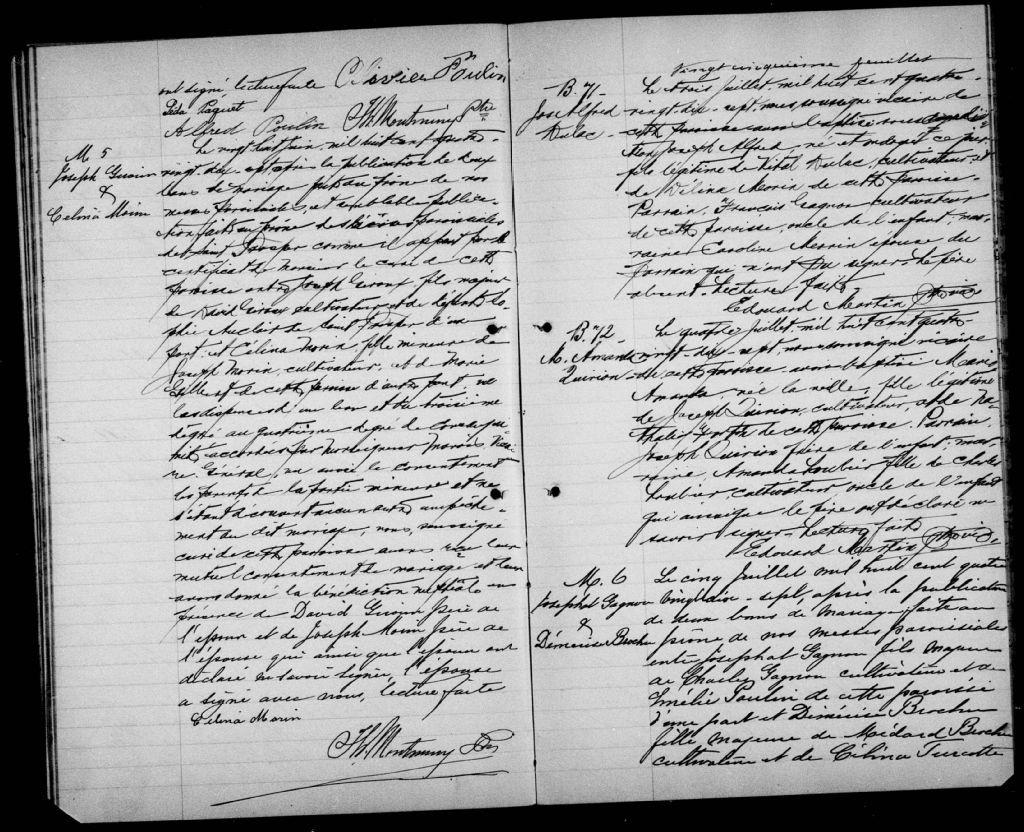 ont signé. Lecture faite Olivier Poulin
Paquet
Alfred Poulin Th. Montminy Ptre
M 5
Joseph Giroux
&
Celina Morin
Le vingt huit juin, mil huit cent quatre-
vingt dix sept après la publication de deux
bans de mariage faite au prône de nos
messes paroissiales, et semblable publica-
tion faite au prône des messes paroissiales
de Saint Prosper comme il appert par le
certificat de Monsieur le curé de cette
paroisse entre Joseph Giroux, fils majeur
de David Giroux cultivateur et de
Auclair de Saint Prosper d'une
part, et Célina Morin fille mineure de
Joseph Morin, cultivateur, et de Marie
de cette paroisse d'autre part, vu
la dispense d'un ban et du troisième
degré au quatrième degré de consangui-
nité accordée par Monseigneur Marois, Vicai-
re Général, vu aussi le consentement
des parents de la partie mineure et ne
s'étant découvert aucun autre empêche-
ment au dit mariage, nous, soussigné
curé de cette paroisse avons reçu leur
mutuel consentement de mariage et leur
avons donné la bénédiction nuptiale en
présence de David Giroux père de
l'époux et de Joseph Morin père de
l'épouse qui ainsi que l'époux ont
déclaré ne savoir signer, l'épouse
a signé avec nous, lecture faite
Celina Morin
Th. Montminy Ptre
B. 71
Jos Alfred
Dulac
Vingt cinquième feuillet
Le trois Juillet, mil huit cent quatre-
vingt dix-sept, nous soussigné vicaire de
cette paroisse avons baptisé sous condi-
tion Joseph Alfred, né et ce jour
fils légitime de Vital Dulac, cultivateur et
de Vélina Morin de cette paroisse.
Parrain, François Gagnon cultivateur
de cette paroisse, oncle de l'enfant, mar-
raine Caroline Morin épouse du
parrain qui n'ont pu signer. Le père
absent. Lecture faite
Edouard Martin, Ptre Vic
B. 72
M. Amanda
Quirion
Le quatre Juillet mil huit cent quatre
vingt dix-sept, nous soussigné vicaire
de cette paroisse, avons baptisé Marie
Amanda, née la veille, fille légitime
de Joseph Quirion, cultivateur, et de Na-
thalie de cette paroisse. Parrain,
Joseph Quirion frère de l'enfant, mar-
raine, Amanda Loubier fille de Charles
Loubier cultivateur oncle de l'enfant
qui ainsi que le père ont déclaré ne
savoir signer. Lecture faite
Edouard Martin, Ptre Vic.
M. 6
Josephat Gagnon
&
Démérise Berocher
Le cinq Juillet mil huit cent quatre
vingt dix-sept, après la publication
de deux bans de mariage faite au
prone de nos messes paroissiales
entre Josephat Gagnon fils majeur
de Charles Gagnon cultivateur et de
Emélie Poulin de cette paroisse
d'une part et Démérise Berocher
fille majeure de Médard Berocher
cultivateur et de Célina Turcotte